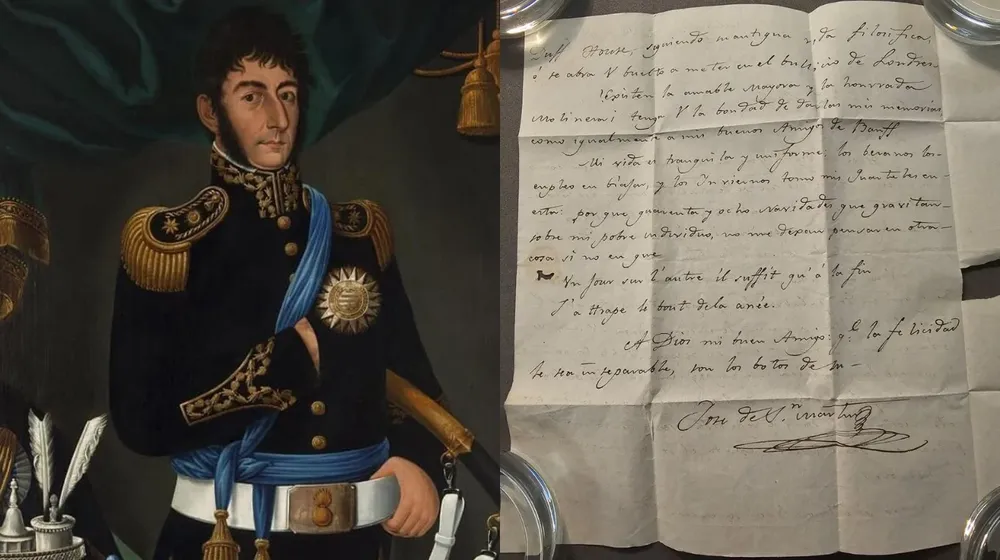 Duff House, siguiendo mantigua vida filosifica,
ó se abra V buelto a meter en el bullicio de Londres
¿Existen la amable Mayora y la honrrada
Molinera? tenga V la bondad de darlas mis memorias
como igualmente a mis buenos Amigos de Banff
Mi vida es tranquila y uniforme: los beranos los
empleo en biajar, y los Inviernos tomo mis Quarteles en
esta: por que quarenta y ocho navidades que gravitan
sobre mi pobre individuo, no me dejan pensar en otra
cosa si no en que
Un jour sur l'autre il suffit qu'á la fin
J'attrape le bout de la anée.
A Dios mi buen Amigo: q.e la felicidad
le sea inseparable, son los botos de su
Jose de S.n Martin